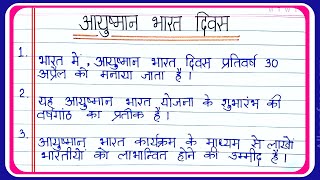 आयुष्मान भारत दिवस
1. भारत में, आयुष्मान भारत दिवस प्रतिवर्ष 30
अप्रैल को मनाया जाता है।
2. यह आयुष्मान भारत योजना के शुभारंभ की
वर्षगांठ का प्रतीक है।
3. आयुष्मान भारत कार्यक्रम के माध्यम से लाखों
भारतीयों को लाभान्वित होने की उम्मीद है।